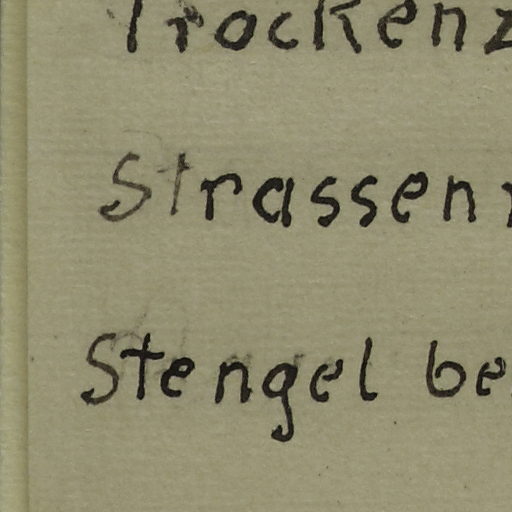 Trockenz
Strassen
Stengel be